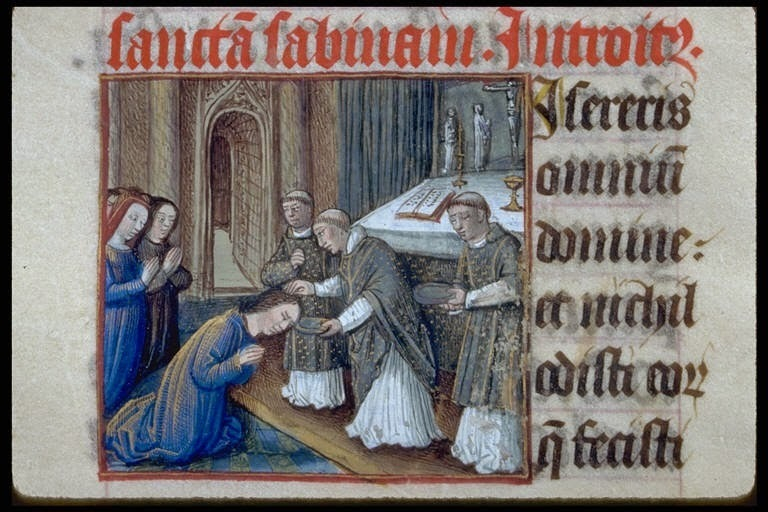 sanctā sabinam. Introitꝰ.
Misereris
omniū
domine:
et nichil
odisti eoꝝ
q̄ fecisti